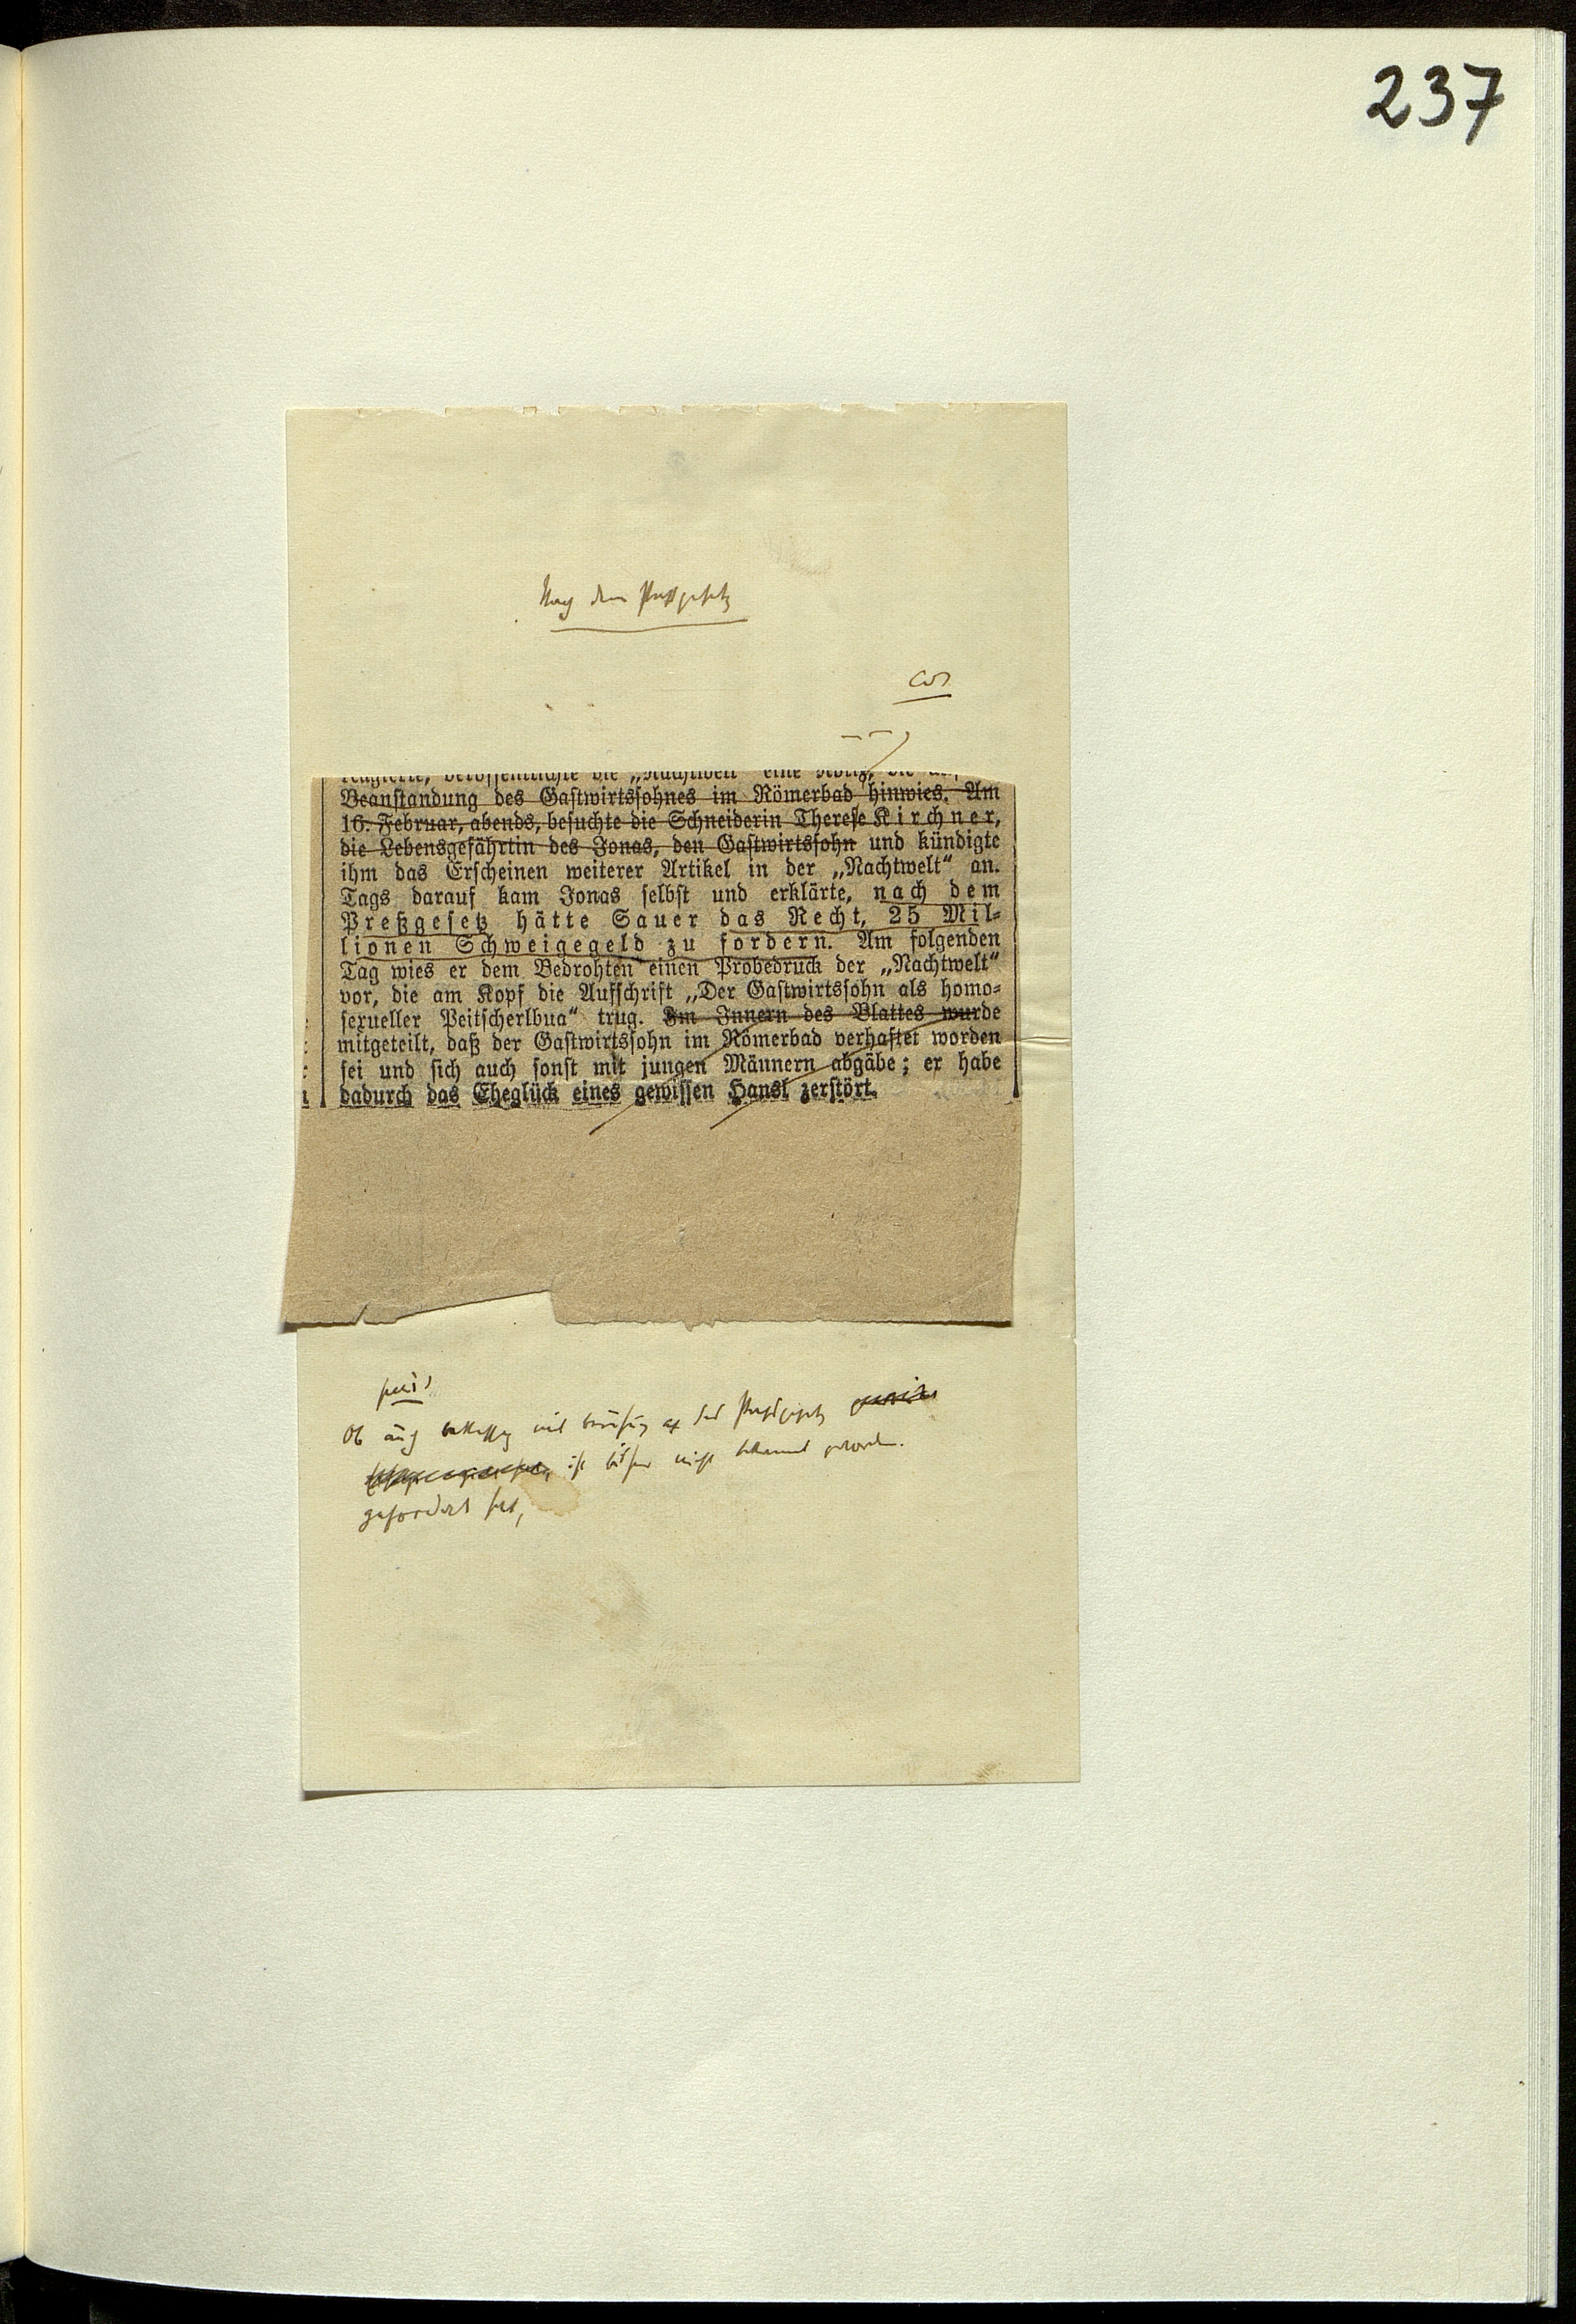 237
Nach dem Preßgesetz
cor
Beanstandung des Gastwirtssohnes im Römerbad hinwies. Am
16. Februar, abends, besuchte die Schneiderin Therese Kirchner,
die Lebensgefährtin des Jonas, den Gastwirtssohn und kündigte
ihm das Erscheinen weiterer Artikel in der „Nachtwelt“ an.
Tags darauf kam Jonas selbst und erklärte, nach dem
Preßgesetz hätte Sauer das Recht, 25 Mil-
lionen Schweigegeld zu fordern. Am folgenden
Tag wies er dem Bedrohten einen Probedruck der „Nachtwelt“
vor, die am Kopf die Aufschrift „Der Gastwirtssohn als homo-
sexueller Peitscherlbua“ trug. Im Innern des Blattes wurde
mitgeteilt, daß der Gastwirtssohn im Römerbad verhaftet worden
sei und sich auch sonst mit jungen Männern abgäbe; er habe
dadurch das Eheglück eines gewissen Hansl zerstört.
Ob auch mit Berufung auf das Preßgesetz
ist bisher nicht bekannt geworden.
gefordert hat,